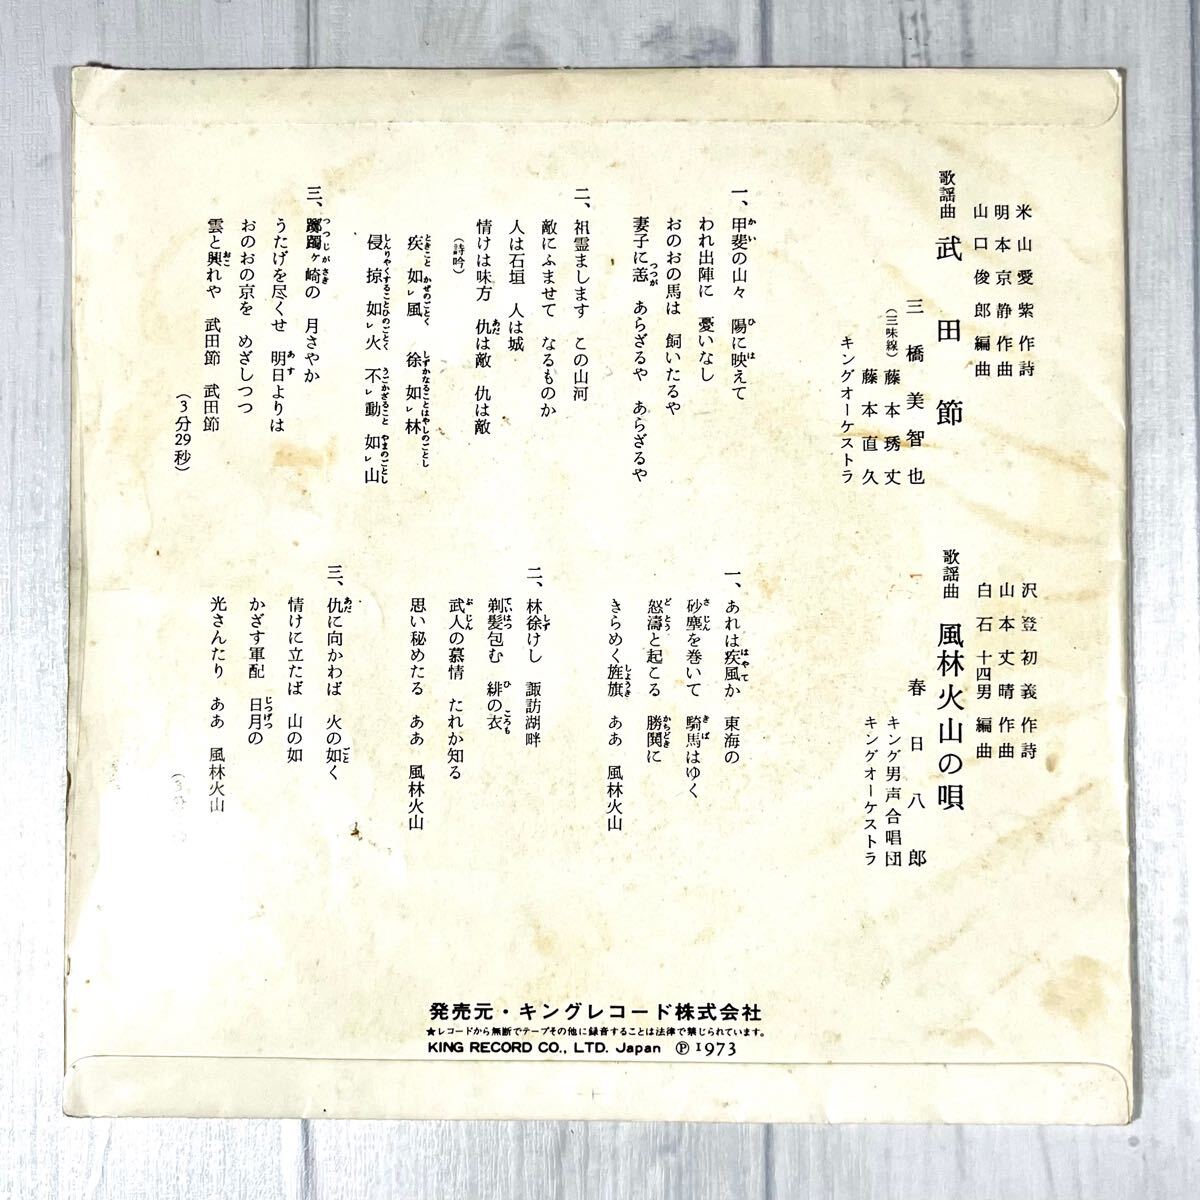 米山愛紫作詩
明本京静作曲
山口俊郎編曲
歌謡曲 武田節
三橋美智也
(三味線) 藤本琇丈
藤本直久
キングオーケストラ
一、甲斐の山々 陽に映えて
われ出陣に 憂いなし
おのおの馬は 飼いたるや
妻子に恙 あらざるや あらざるや
二、祖霊まします この山河
敵にふませて なるものか
人は石垣 人は城
情けは味方 仇は敵 仇は敵
(詩吟)
疾如レ風 徐如レ林
侵掠如レ火 不レ動如レ山
三、躑躅ヶ崎の 月さやか
うたげを尽くせ 明日よりは
おのおの京を めざしつつ
雲と興れや 武田節 武田節
(3分29秒)
沢登初義作詩
山本丈晴作曲
白石十四男編曲
歌謡曲 風林火山の唄
春日八郎
キング男声合唱団
キングオーケストラ
一、あれは疾風か 東海の
砂塵を巻いて 騎馬はゆく
怒濤と起こる 勝鬨に
きらめく旌旗 ああ 風林火山
二、林徐けし 諏訪湖畔
剃髪包む 緋の衣
武人の慕情 たれか知る
思い秘めたる ああ 風林火山
三、仇に向かわば 火の如く
情けに立たば 山の如
かざす軍配 日月の
光さんたり ああ 風林火山
発売元・キングレコード株式会社
★レコードから無断でテープその他に録音することは法律で禁じられています。
KING RECORD CO., LTD. Japan Ⓟ 1973